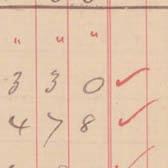 " " "
3 3 0 ✓
4 7 8 ✓